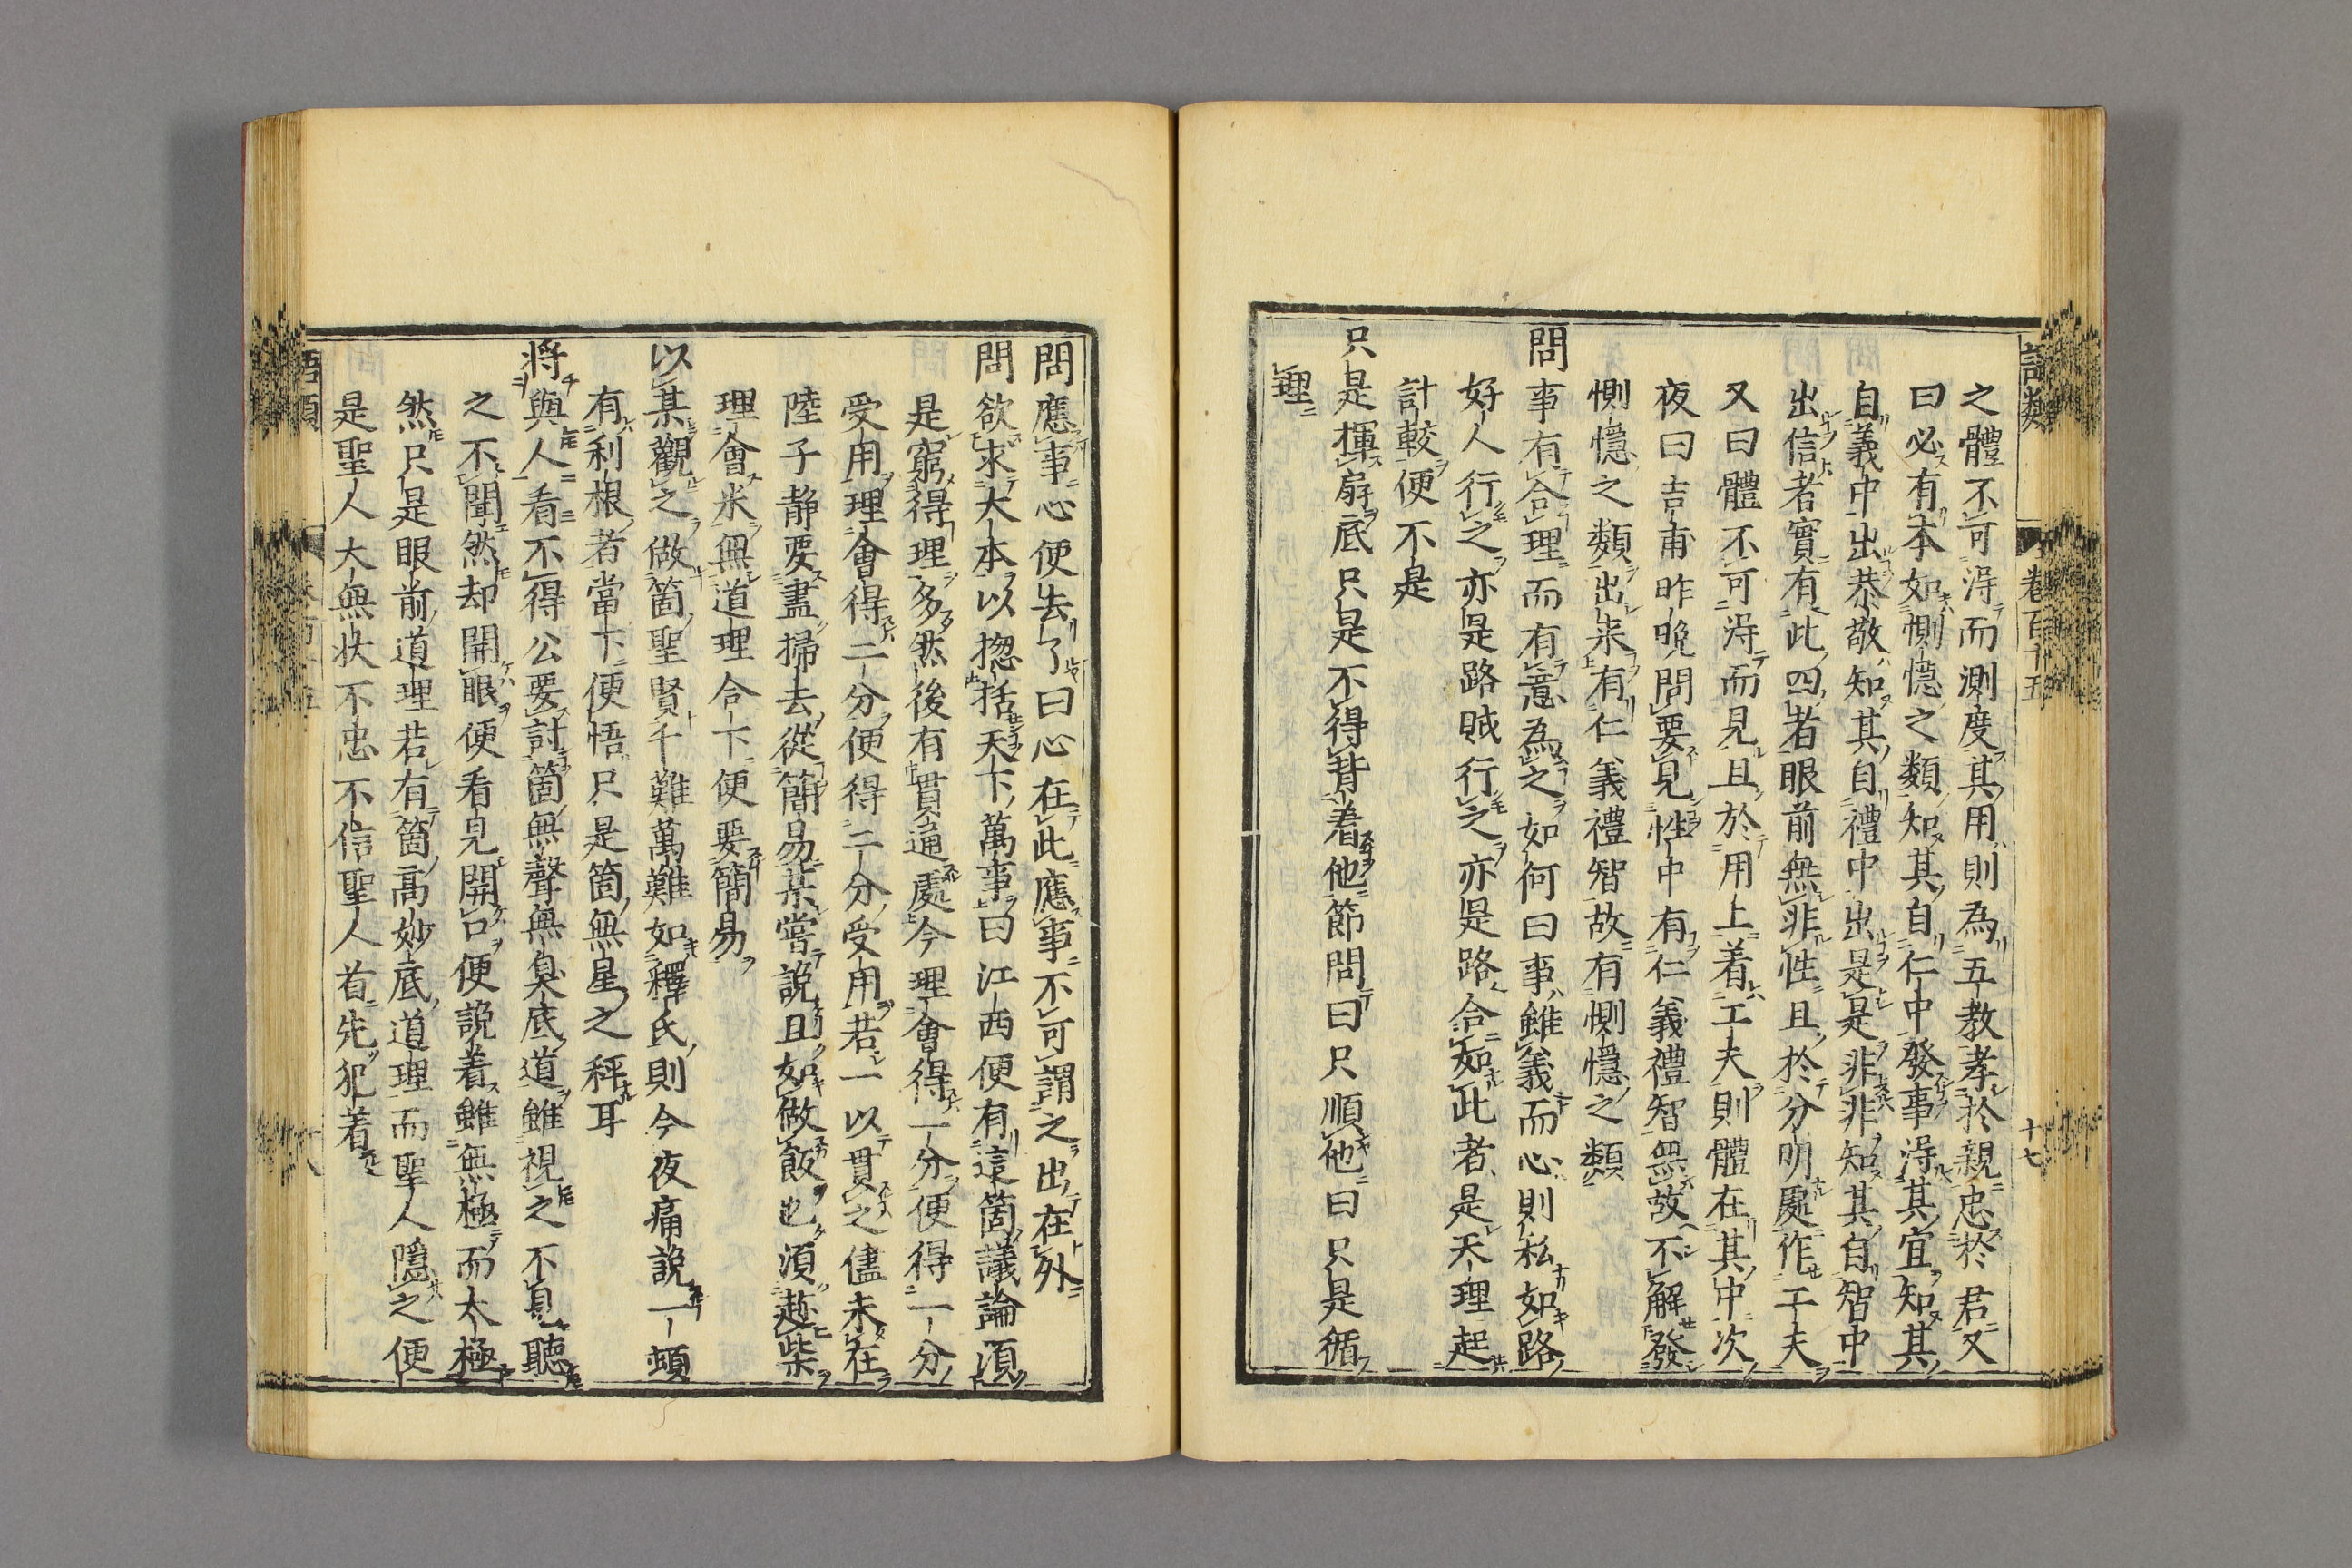 語類
卷百十五
十七
之體不可淂而測度其用則為五教孝於親忠於君又
曰必有本如惻憶之類知其自仁中發事淂其宜知其
自義中出恭敬知其自禮中出是是非非知其自智中
出信者實有此四者眼前無非性且於分明處作工夫
又曰體不可淂而見且於用上着工夫則體在其中次
夜曰吉甫昨晩問要見性中有仁義禮智無故不解發
惻憶之類出來有仁義禮智故有惻憶之類
問事有合理而有意為之如何曰事雖義而心則私如路
好人行之亦是路賊行之亦是路合如此者是天理起
計較便不是
只是揮扇底只是不得背着他節問曰只順他曰只是循
理
問應事心便去了曰心在此應事不可謂之出在外
問欲求大本以揔括天下萬事曰江西便有這箇議論湏
是窮得理多然後有貫通處今理會得一分便得一分
受用理會得二分便得二分受用若一以貫之儘未在
陸子静要盡掃去從簡易某嘗說且如做飯也湏趂柴
理會米無道理合下便要簡易
以某觀之做箇聖賢千難萬難如釋氏則今夜痛說一頓
有利根者當下便悟只是箇無星之秤耳
將與人看不得公要討箇無聲無臭底道雖視之不見聽
之不聞然却開眼便看見開口便說着雖無極而太極
然只是眼前道理若有箇高妙底道理而聖人隱之便
是聖人大無狀不忠不信聖人首先犯着
語類